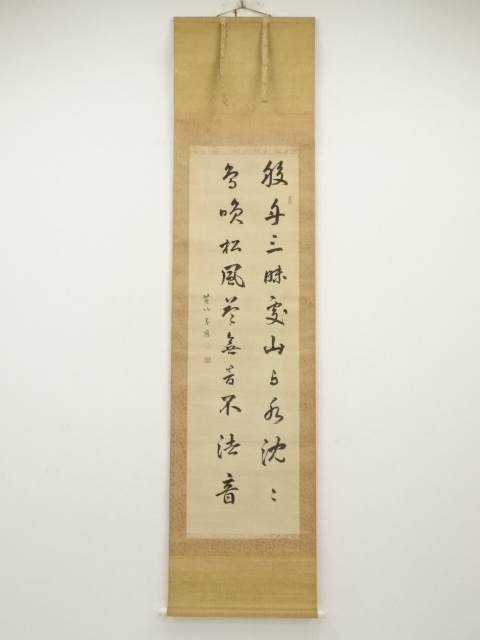 般舟三昧處山与水沈〻
鳥喚松風巻無音不法音